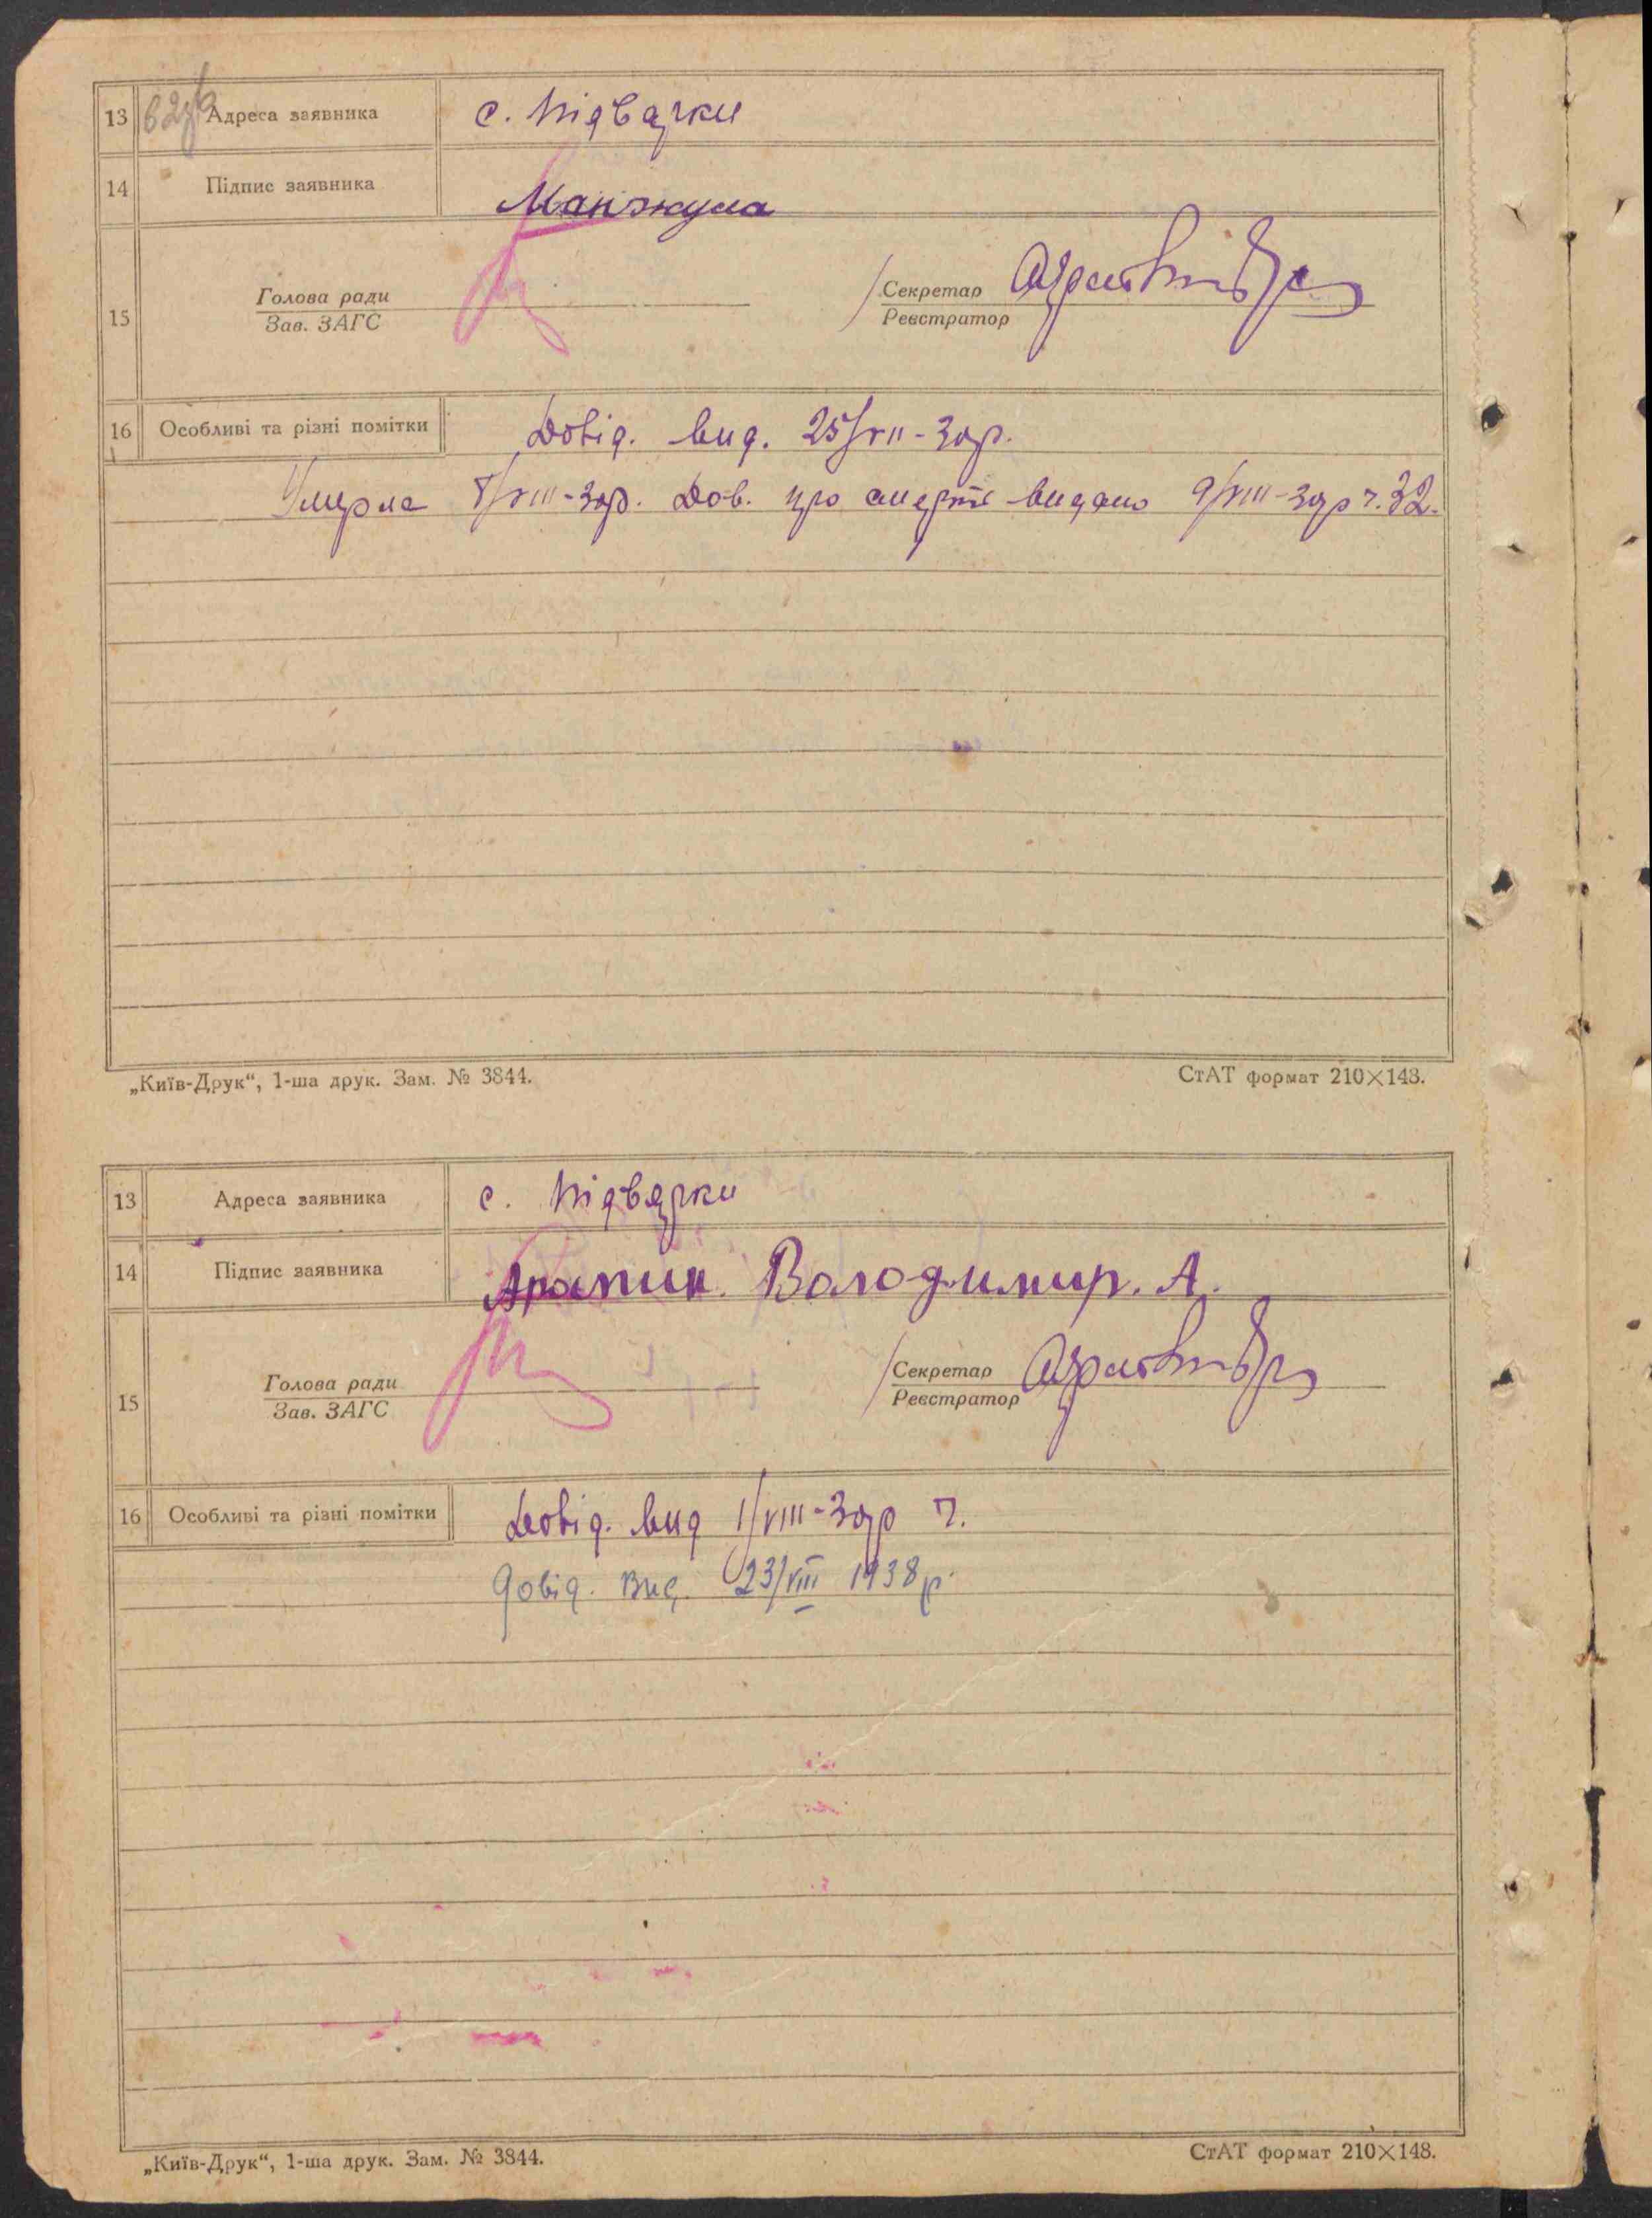 13 62зв Адреса заявника с. Підварки
14 Підпис заявника Манжула
15 Голова ради
Зав. ЗАГС
Секретар
Реєстратор
16 Особливі та різні помітки Довід. вид. 25/VII-30р.
Умерла 8/VIII-30р. Дов. про смерть видано 9/VIII-30р ч. 32.
„Київ-Друк“, 1-ша друк. Зам. № 3844. СтАТ формат 210×148.
13 Адреса заявника с. Підварки
14 Підпис заявника Арапин. Володимир. А.
15 Голова ради
Зав. ЗАГС
Секретар
Реєстратор
16 Особливі та різні помітки Довід. вид 1/VIII-30р ч.
Довід. вид. 23/VIII 1938 р.
„Київ-Друк“, 1-ша друк. Зам. № 3844. СтАТ формат 210×148.